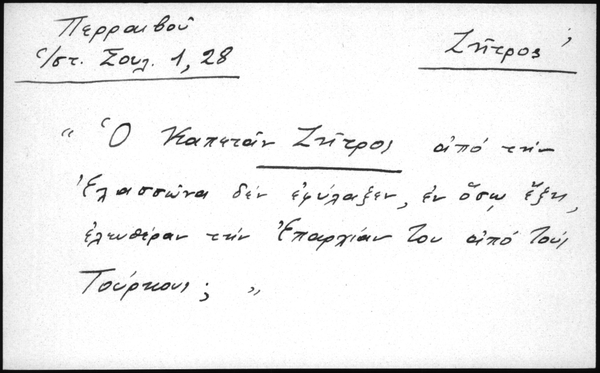 Περραιβού Ζῆτρος ;
Ἱστ. Σουλ. 1, 28
" Ὁ Καπετάν Ζῆτρος ἀπό τήν
Ἐλασσῶνα δέν ἐφύλαξεν, ἐν ὅσῳ ἔζη,
ἐλευθέραν τήν Ἐπαρχίαν του ἀπό τούς
Τούρκους; "